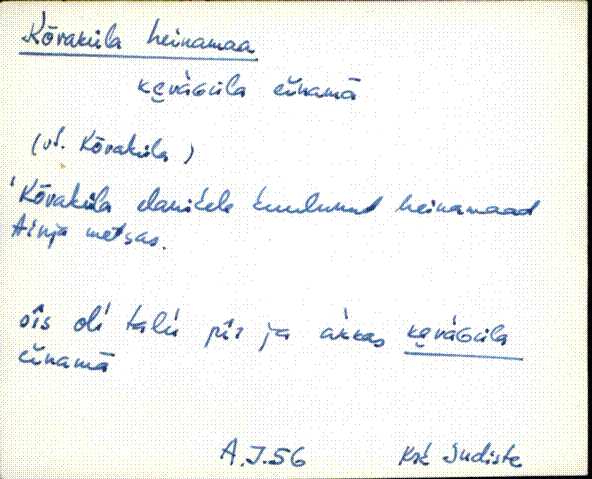 Kõraküla heinamaa
kęràGùla einamā
(vt. Kõraküla)
'Kõraküla elanikele kuulunud heinamaad
Ainja metsas.
sîs olì talù pîr ja akkas kęràGùla
einamā
A.J.56 Krk Sudiste